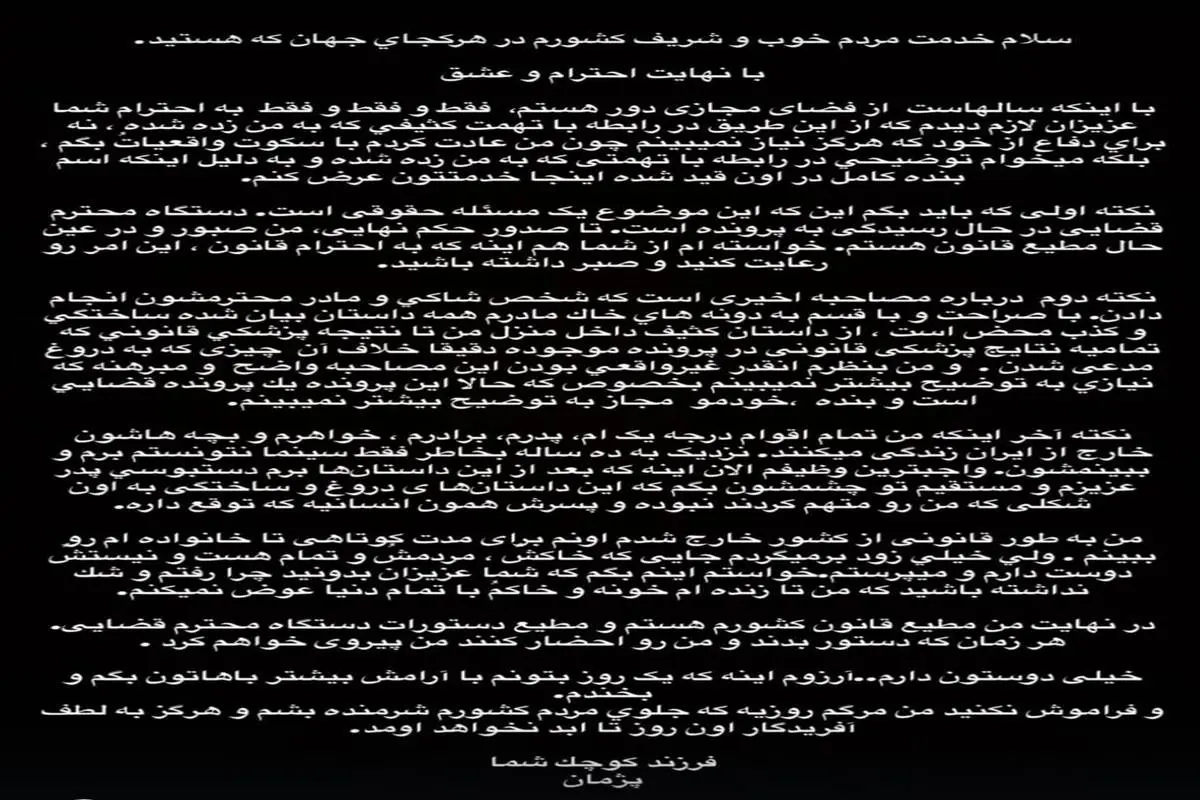 سلام خدمت مردم خوب و شریف کشورم در هرکجاي جهان که هستید.
با نهایت احترام و عشق
با اینکه سالهاست از فضای مجازی دور هستم، فقط و فقط و فقط به احترام شما
عزیزان لازم دیدم که از این طریق در رابطه با تهمت کثیفي که به من زده شده ، نه
براي دفاع از خود که هرگز نیاز نمیبینم چون من عادت کردم با سکوت واقعیاتُ بگم ،
بلکه میخوام توضیحي در رابطه با تهمتی که به من زده شده و به دلیل اینکه اسم
بنده کامل در اون قید شده اینجا خدمتتون عرض کنم.
نکته اولی که باید بگم این که این موضوع یک مسئله حقوقی است. دستگاه محترم
قضایی در حال رسیدگی به پرونده است. تا صدور حکم نهایی، من صبور و در عین
حال مطیع قانون هستم. خواسته ام از شما هم اینه که به احترام قانون ، این امر رو
رعایت کنید و صبر داشته باشید.
نکته دوم درباره مصاحبه اخیری است که شخص شاکي و مادر محترمشون انجام
دادن. با صراحت و با قسم به دونه هاي خاك مادرم همه داستان بیان شده ساختگي
و کذب محض است ، از داستان کثیف داخل منزل من تا نتیجه پزشکي قانوني که
تمامیه نتایج پزشکی قانونی در پرونده موجوده دقیقا خلاف آن چیزی که به دروغ
مدعی شدن . و من بنظرم انقدر غیرواقعي بودن این مصاحبه واضح و مبرهنه که
نیازي به توضیح بیشتر نمیبینم بخصوص که حالا این پرونده یك پرونده قضایي
است و بنده ،خودمو مجاز به توضیح بیشتر نمیبینم.
نکته آخر اینکه من تمام اقوام درجه یک ام، پدرم، برادرم ، خواهرم و بچه هاشون
خارج از ایران زندگی میکنند. نزدیک به ده ساله بخاطر فقط سینما نتونستم برم و
ببینمشون. واجبترین وظیفم الان اینه که بعد از این داستان‌ها برم دستبوسي پدر
عزیزم و مستقیم تو چشمشون بگم که این داستان‌ها ی دروغ و ساختگی به اون
شکلی که من رو متهم کردند نبوده و پسرش همون انسانیه که توقع داره.
من به طور قانونی از کشور خارج شدم اونم برای مدت کوتاهی تا خانواده ام رو
ببینم . ولي خیلی زود برمیگردم جایی که خاکش ، مردمشُ و تمام هست و نیستشُ
دوست دارم و میپرستم.خواستم اینم بگم که شما عزیزان بدونید چرا رفتم و شك
نداشته باشید که من تا زنده ام خونه و خاکمُ با تمام دنیا عوض نمیکنم.
در نهایت من مطیع قانون کشورم هستم و مطیع دستورات دستگاه محترم قضایی.
هر زمان که دستور بدند و من رو احضار کنند من پیروی خواهم کرد .
خیلی دوستون دارم..آرزوم اینه که یک روز بتونم با آرامش بیشتر باهاتون بگم و
بخندم.
و فراموش نکنید من مرگم روزیه که جلوي مردم کشورم شرمنده بشم و هرگز به لطف
آفریدگار اون روز تا ابد نخواهد اومد.
فرزند کوچك شما
پژمان